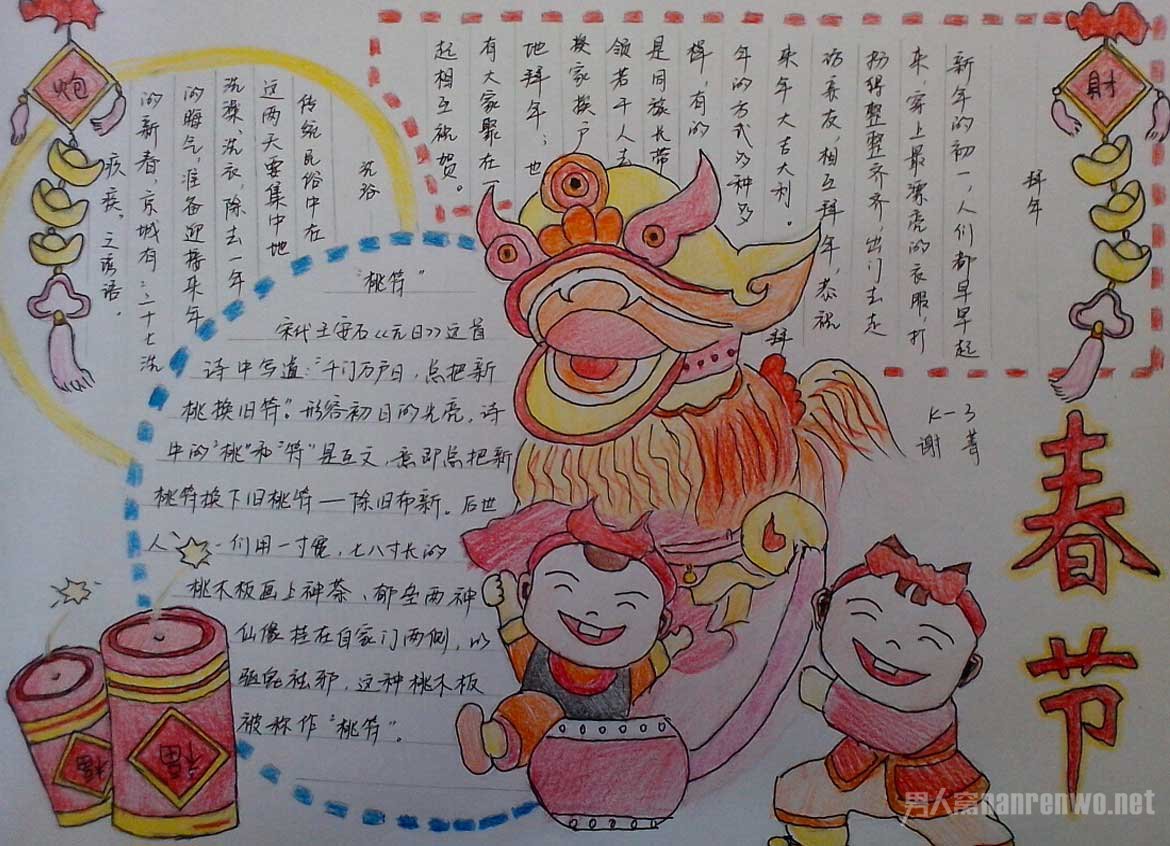 春节
拜年
新年的初一,人们都早早起
来,穿上最漂亮的衣服,打
扮得整整齐齐,出门去走
访亲友,相互拜年,恭祝
来年大吉大利。拜
年的方式多种多
样,有的
是同族长带
领若干人去
挨家挨户
地拜年;也
有大家聚在一
起相互祝贺。
K-3
谢菁
财
炮
洗浴
传统民俗中在
这两天要集中地
洗澡、洗衣,除去一年
的晦气,准备迎接来年
的新春,京城有"二十七洗
疾"之谚语。
"桃符"
宋代王安石《元日》这首
诗中写道:"千门万户日,总把新
桃换旧符"。形容初日的光亮,诗
中的"桃"和"符"是互文,意即总把新
桃符换下旧桃符—除旧布新。后世
人们用一寸宽,七八寸长的
桃木板画上神荼、郁垒两神
仙像挂在自家门两侧,以
驱鬼祛邪,这种桃木板
被称作"桃符"。
福
福
男人窝nanrenwo.net